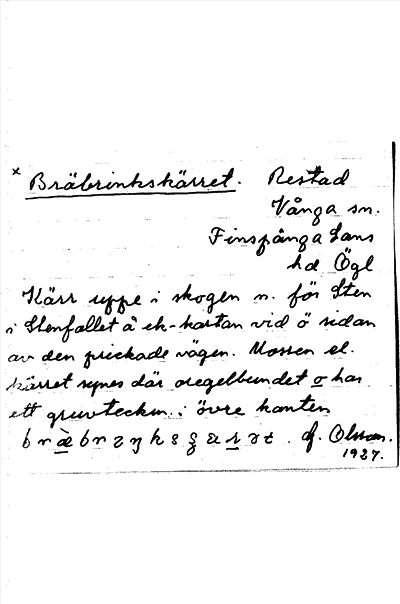 x Bräbrinkskärret. Restad
Vånga sn.
Finspånga läns
hd Ögl
Kärr uppe i skogen n. för Sten
i Stenfallet å ek-kartan vid ö sidan
av den prickade vägen. Mossen el.
kärret synes där oregelbundet o har
ett gruvtecken i övre kanten
Olsson.
1927.